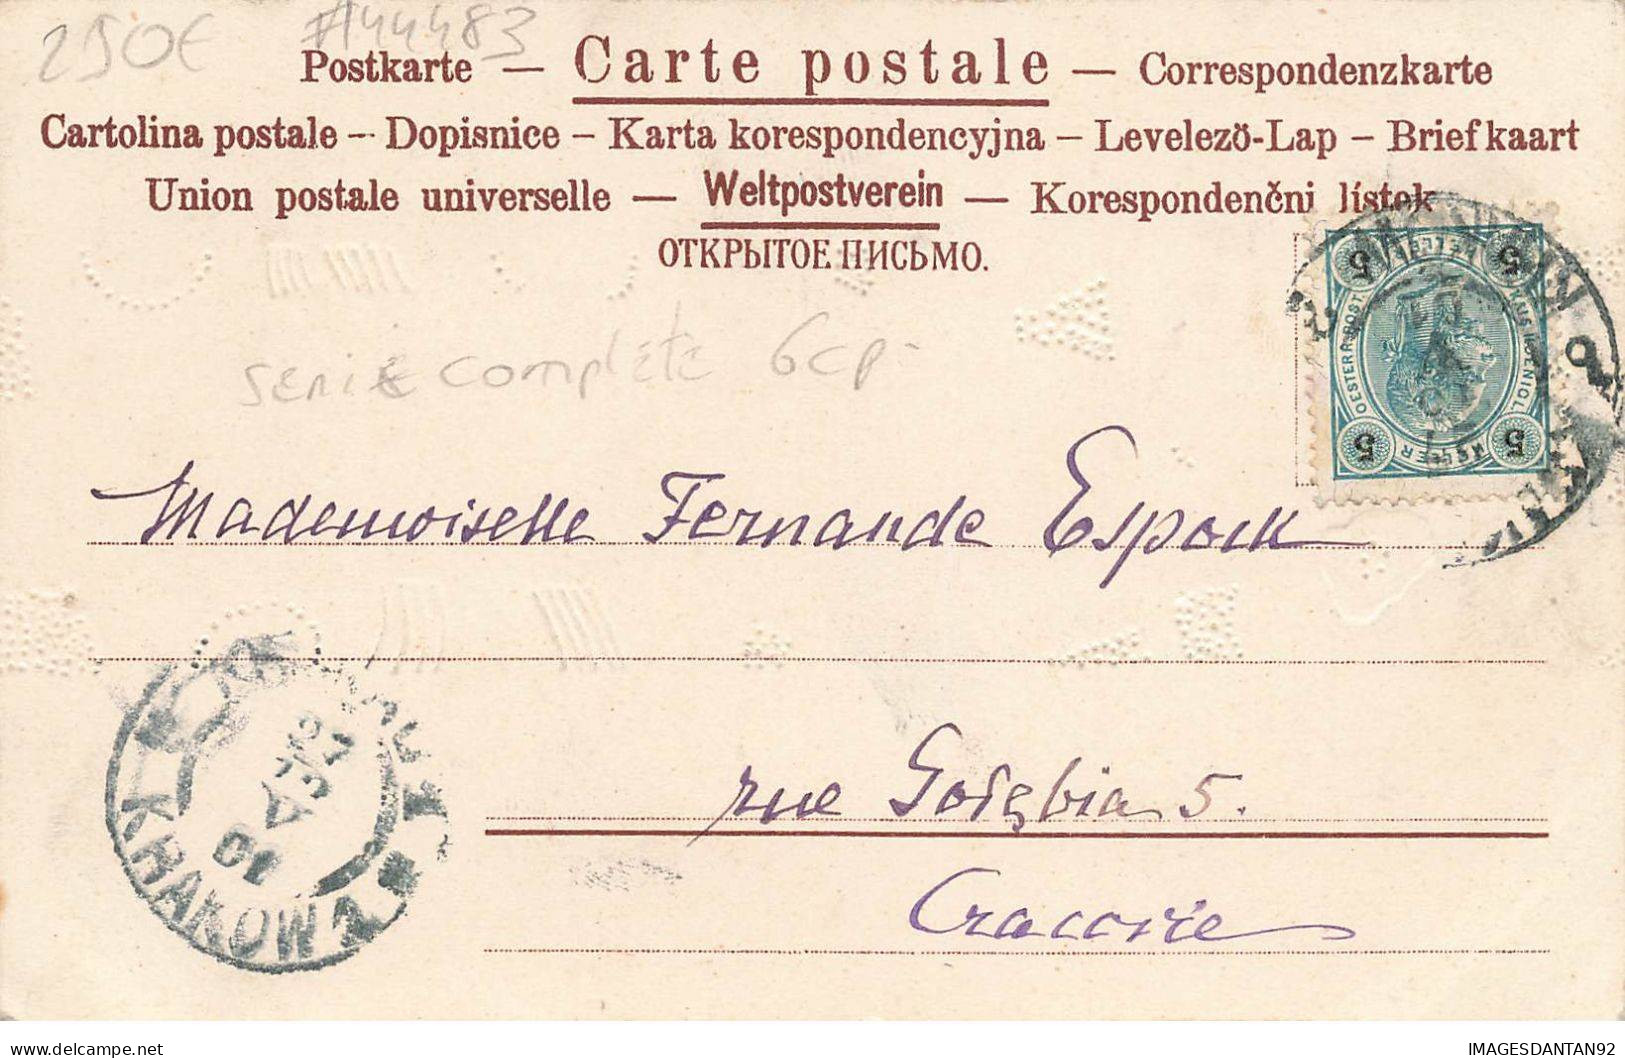 250€ #44483
Postkarte — Carte postale — Correspondenzkarte
Cartolina postale – Dopisnice – Karta korespondencyjna – Levelező-Lap – Briefkaart
Union postale universelle — Weltpostverein — Korespondenčni lístek
ОТКРЫТОЕ ПИСЬМО.
5 5
OESTERR. POST
5 5
serie complète 6cp-
Mademoiselle Fernande Espock
rue Gołębia 5.
KRAKOW 1
01
Cracovie
IMAGESDANTAN92